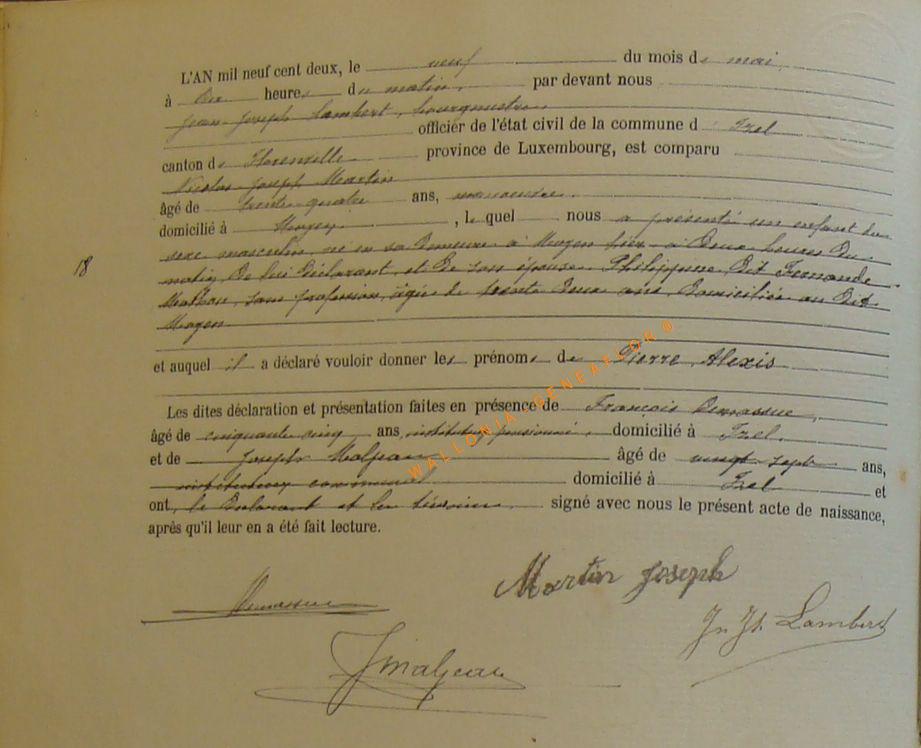 L'AN mil neuf cent deux, le neuf du mois de mai
à heures du matin, par devant nous
Jean Joseph Lambert, bourgmestre
officier de l'état civil de la commune d' Izel
canton de Florenville province de Luxembourg, est comparu
Nicolas Joseph Martin
âgé de trente quatre ans,
domicilié à Moyen, lequel nous a présenté un enfant du
sexe masculin, né en sa demeure à Moyen hier à deux heures du
matin, de lui déclarant, et de son épouse Philippine dit Fernande
sans profession, âgée de trente deux ans, domiciliée au dit
18
Moyen
et auquel il a déclaré vouloir donner les prénoms de Pierre Alexis
Les dites déclaration et présentation faites en présence de François
âgé de cinquante cinq ans, instituteur pensionné, domicilié à Izel
et de Joseph Maljean âgé de vingt sept ans,
instituteur communal domicilié à Izel et
ont, le déclarant et les témoins signé avec nous le présent acte de naissance,
après qu'il leur en a été fait lecture.
WALLONIA-GENEATSOR ®
Martin Joseph
Jn Jh Lambert
J Maljean